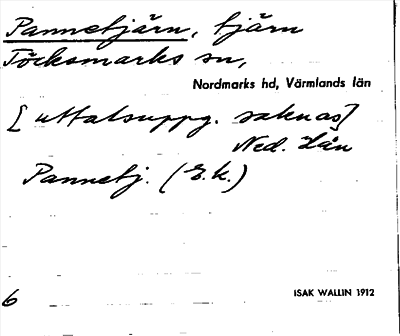 Pannetjärn, tjärn
Töcksmarks sn,
Nordmarks hd, Värmlands län
[uttalsuppg. saknas]
Ned. Hån
Pannetj. (E.k.)
ISAK WALLIN 1912
6